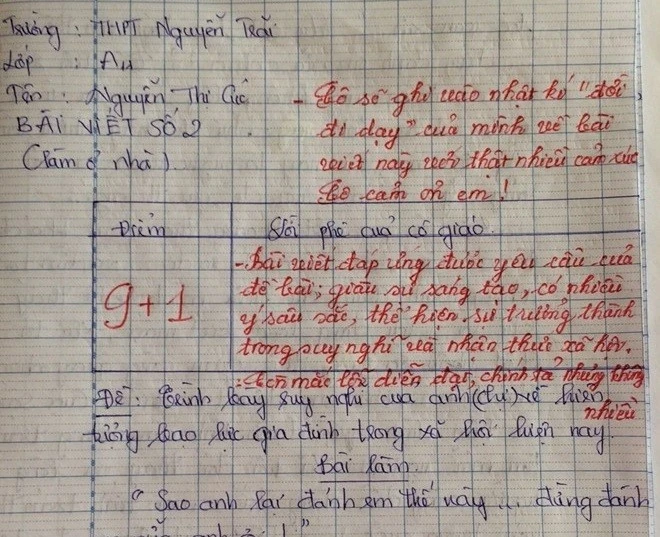 Trường : THPT Nguyễn Trãi
Lớp : A11
Tên : Nguyễn Thị Cúc
BÀI VIẾT SỐ 2
(Làm ở nhà).
- Cô sẽ ghi vào nhật kí "đời
đi dạy" của mình về bài
viết này với thật nhiều cảm xúc
Cô cảm ơn em!
Điểm
Lời phê của cô giáo
9+1
- Bài viết đáp ứng được yêu cầu của
đề bài; giàu sự sáng tạo, có nhiều
ý sâu sắc, thể hiện sự trưởng thành
trong suy nghĩ và nhận thức xã hội.
- Còn mắc lỗi diễn đạt, chính tả nhưng không
nhiều
Đề: Trình bày suy nghĩ của anh (chị) về hiện
tượng bạo lực gia đình trong xã hội hiện nay.
Bài làm
" Sao anh lại đánh em thế này ... đừng đánh